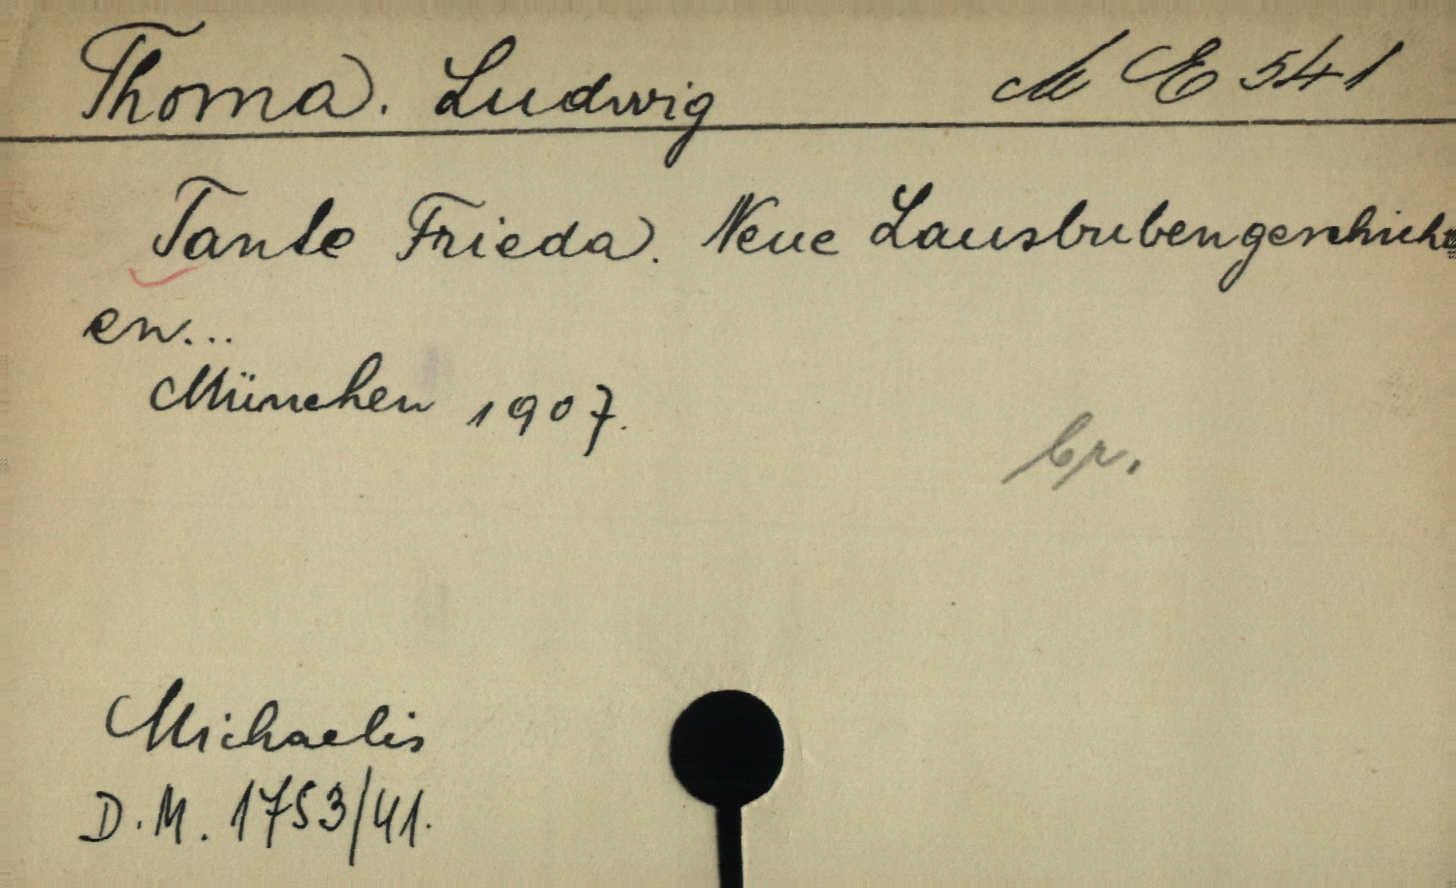 Thoma. Ludwig M E 541
Tante Frieda. Neue Lausbubengeschicht
en...
München 1907.
br.
Michaelis
D.M. 1753/41.